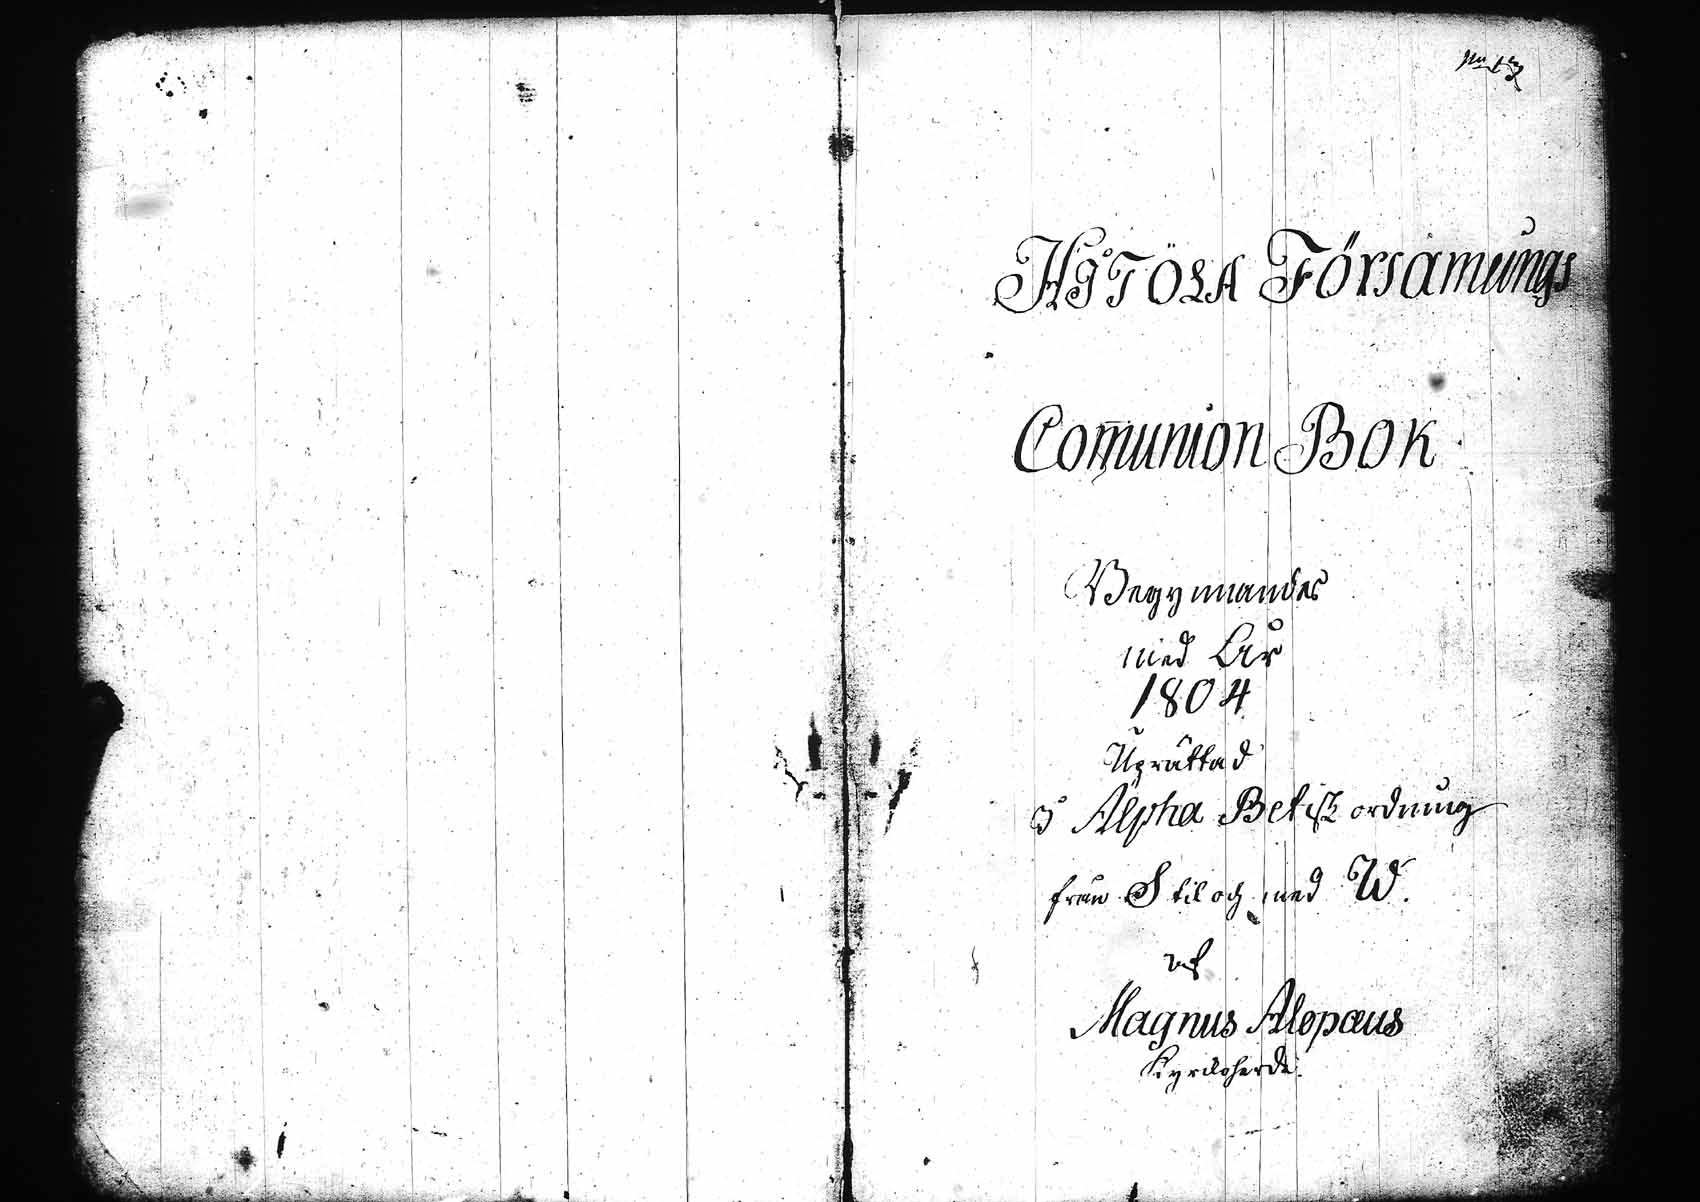 HiTÖLA Församlings
Com̅union BOK
Begynnandes
med År
1804
Uprättad
i Alpha Betisk ordning
från S til och med W.
af
Magnus Alopæus
Kyrckoherde.